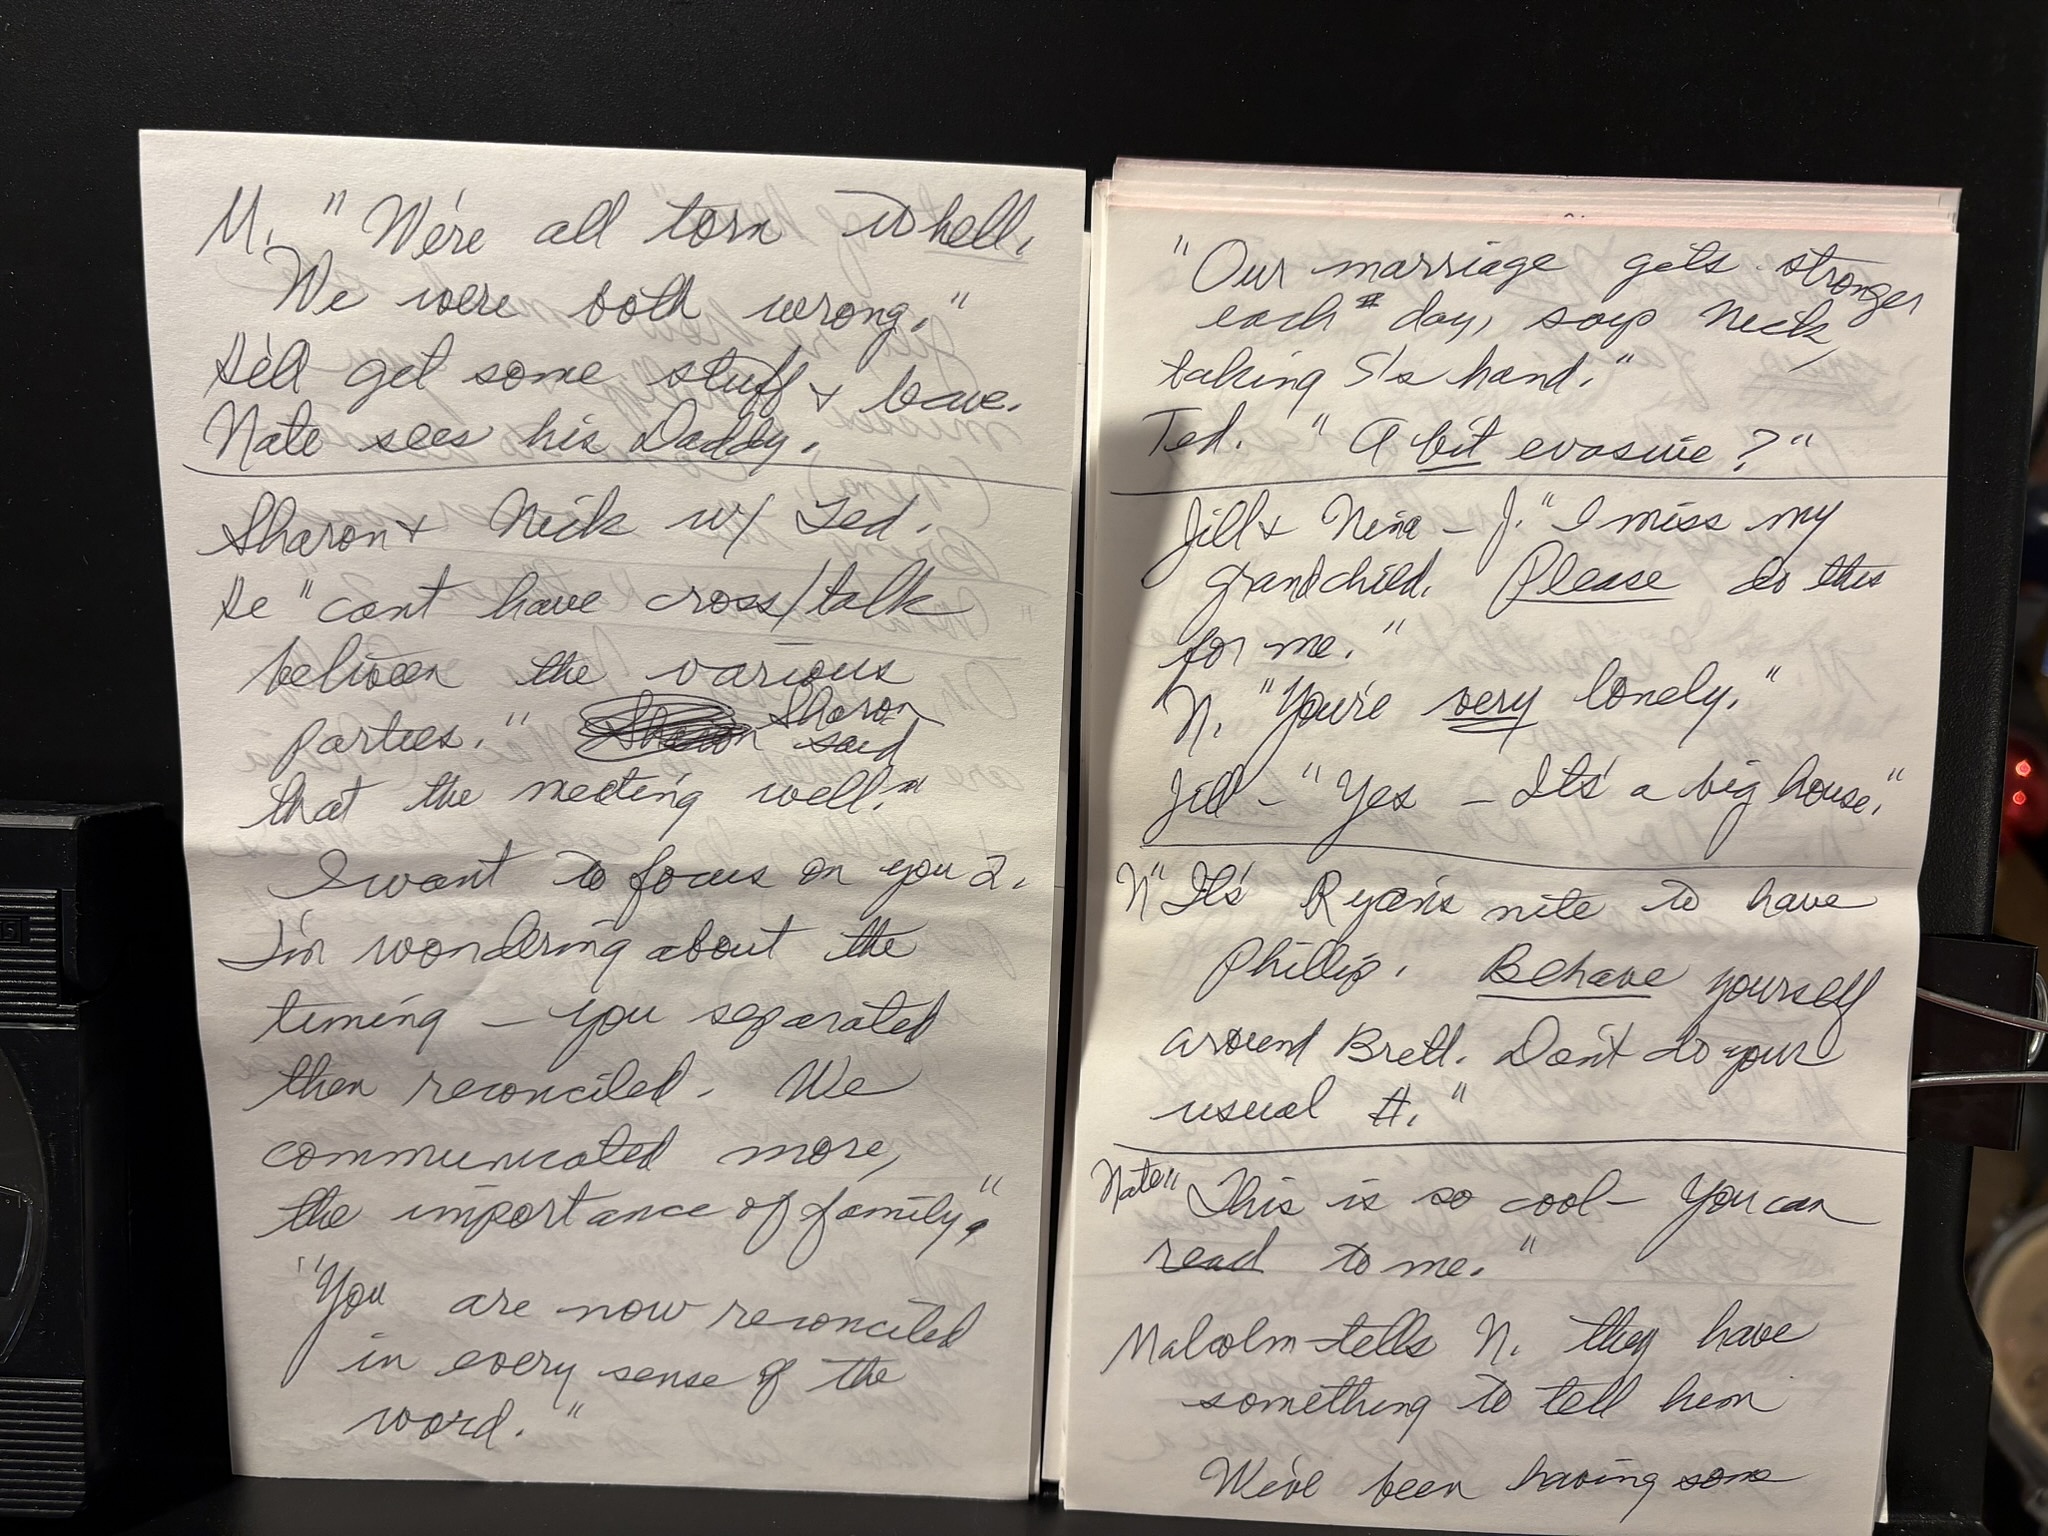 M. "We're all torn to hell.
We were both wrong."
He'll get some stuff & leave.
Nate sees his Daddy.
Sharon & Nick w/ Ted.
He "cant have cross/talk
between the various
parties." Sharon
said
that the meeting well."
I want to focus on you 2.
I'm wondering about the
timing — you separated
then reconciled. We
communicated more,
the importance of family."
"You are now reconciled
in every sense of the
word."
"Our marriage gets stronger
each day, says Nick,
taking S's hand."
Ted. "A bit evasive?"
Jill & Nina – J. "I miss my
grandchild. Please do this
for me."
N. "You're very lonely."
Jill – "Yes – It's a big house."
N "It's Ryan's nite to have
Phillip. Behave yourself
around Brett. Don't do your
usual #."
Nate "This is so cool – You can
read to me."
Malcolm – tells N. they have
something to tell him
We've been having some